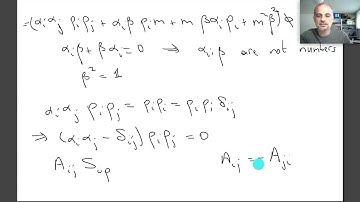 =(αᵢαⱼ pᵢpⱼ + αᵢβ pᵢm + m βαᵢpᵢ + m²β²)ϕ
αᵢβ + βαᵢ = 0 → αᵢβ are not numbers
β² = 1
αᵢαⱼ pᵢpⱼ = pᵢpᵢ = pᵢpⱼ δᵢⱼ
⇒ (αᵢαⱼ - δᵢⱼ) pᵢpⱼ = 0
Aᵢⱼ Aᵢⱼ = -Aⱼᵢ